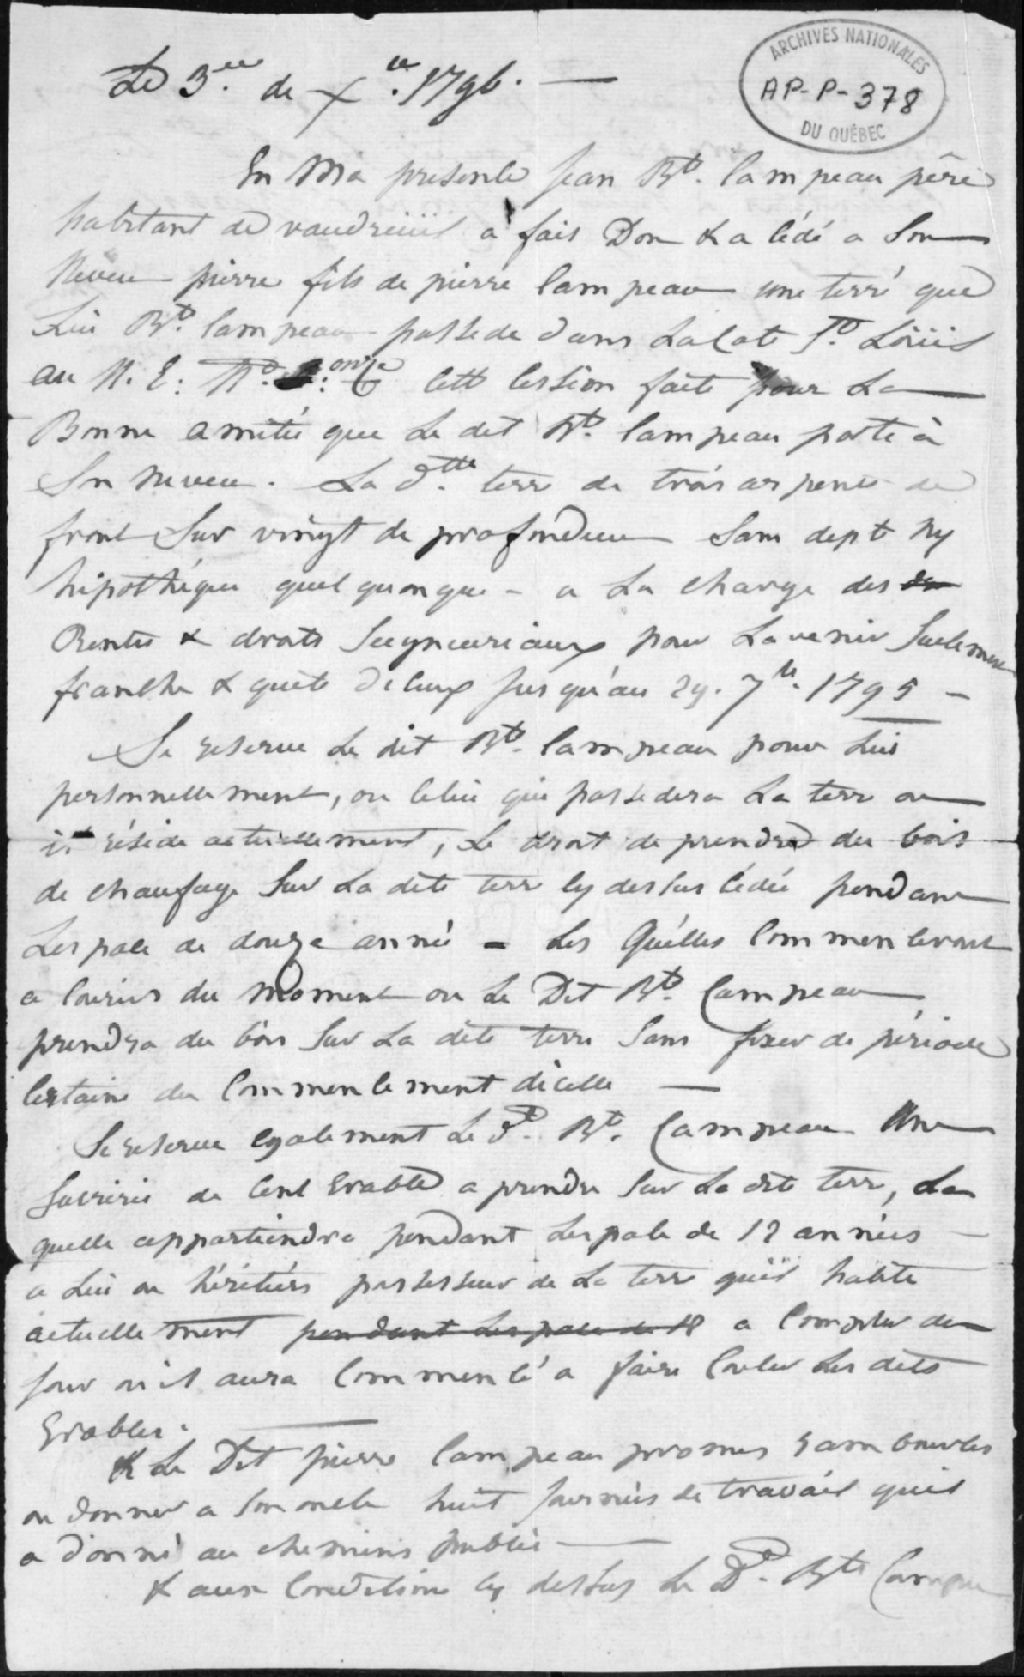 ARCHIVES NATIONALES
AP-P-378
DU QUÉBEC
Le 3.ee de Xre. 1796. —
En Ma presence Jean Bte. Campeau père
habitant de vaudreüil a fais Don & a cédé a Son
Neveu pierre fils de pierre Campeau une terré que
Lui Bte. Campeau possede dans La Cote St. Loüis
au N. E. No. onze cette Cession fait pour La
Bonne amitié que Le dit Bte. Campeau porte à
Son neveu. La dtte. terre de trois arpents de
front Sur vingt de profondeur Sans dept Ny
hipothéque quelquonque - a La charge des
Rentes & droits Seigneuriaux pour Lavenir Seulement
franche & quête diceux jusqu'au 29. 7bre. 1795 -
Se reserve Le dit Bte. Campeau pour Lui
personnellement, ou Celui qui possedera La terre ou
il réside actuellement, Le droit de prendre du bois
de chaufage Sur La dite terre Cy dessus Cédée pendant
Lespace de douze anné - Les Quélles Commenceront
a Courir du Moment ou Le Dit Bte. Campeau
prendra du bois Sur La dite terre Sans fixer de période
Certaine du Commencement dicelle —
Se reserve Egalement Le dt. Bte. Campeau Une
Sucrerie de Cent Erable a prendre Sur La dite terre, La
quelle appartiendra pendant Lespace de 12 années -
a Lui ou héritiérs possesseur de La terre quil habite
actuellement pendant Lespace de 18 a Compter du
jour ou il aura Commencé a faire Couler Les dits
Erables. —
& Le Dit pierre Campeau promes
ou donner a Son oncle huit journées de travail quil
a donné au chemins publics —
& aux Condition Cy dessus Le Dt. Bte Campeau